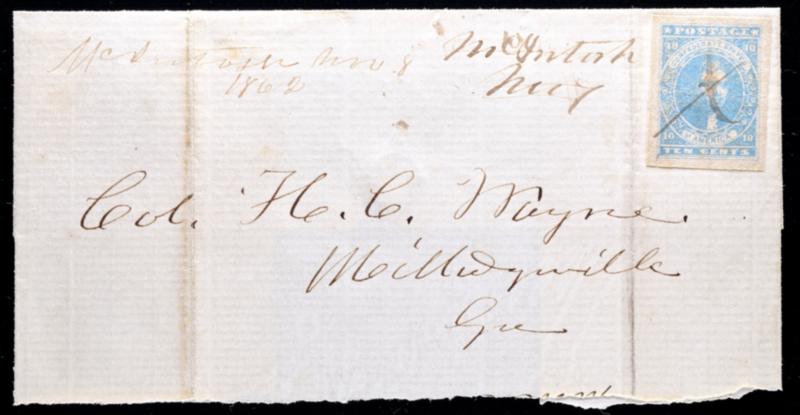 McIntosh Nov 8
1862
McIntosh
Nov 7
POSTAGE
10 10
CONFEDERATE STATES
OF AMERICA
10 10
TEN CENTS
Col. H. C. Wayne.
Milledgville
Ga